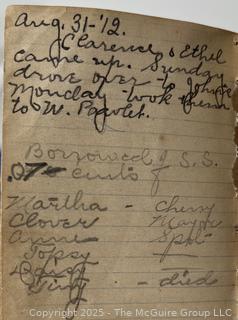 Aug. 31-'12.
Clarence & Ethel
came up. Sunday
drove over to
Monday - took them
to W. Pawlet.
Borrowed of S. S.
.07 cents
Martha - Cherry
Clover Mayor
Anne Spot
Topsy
Daisy
- died
Copyright 2025 - The McGuire Group LLC